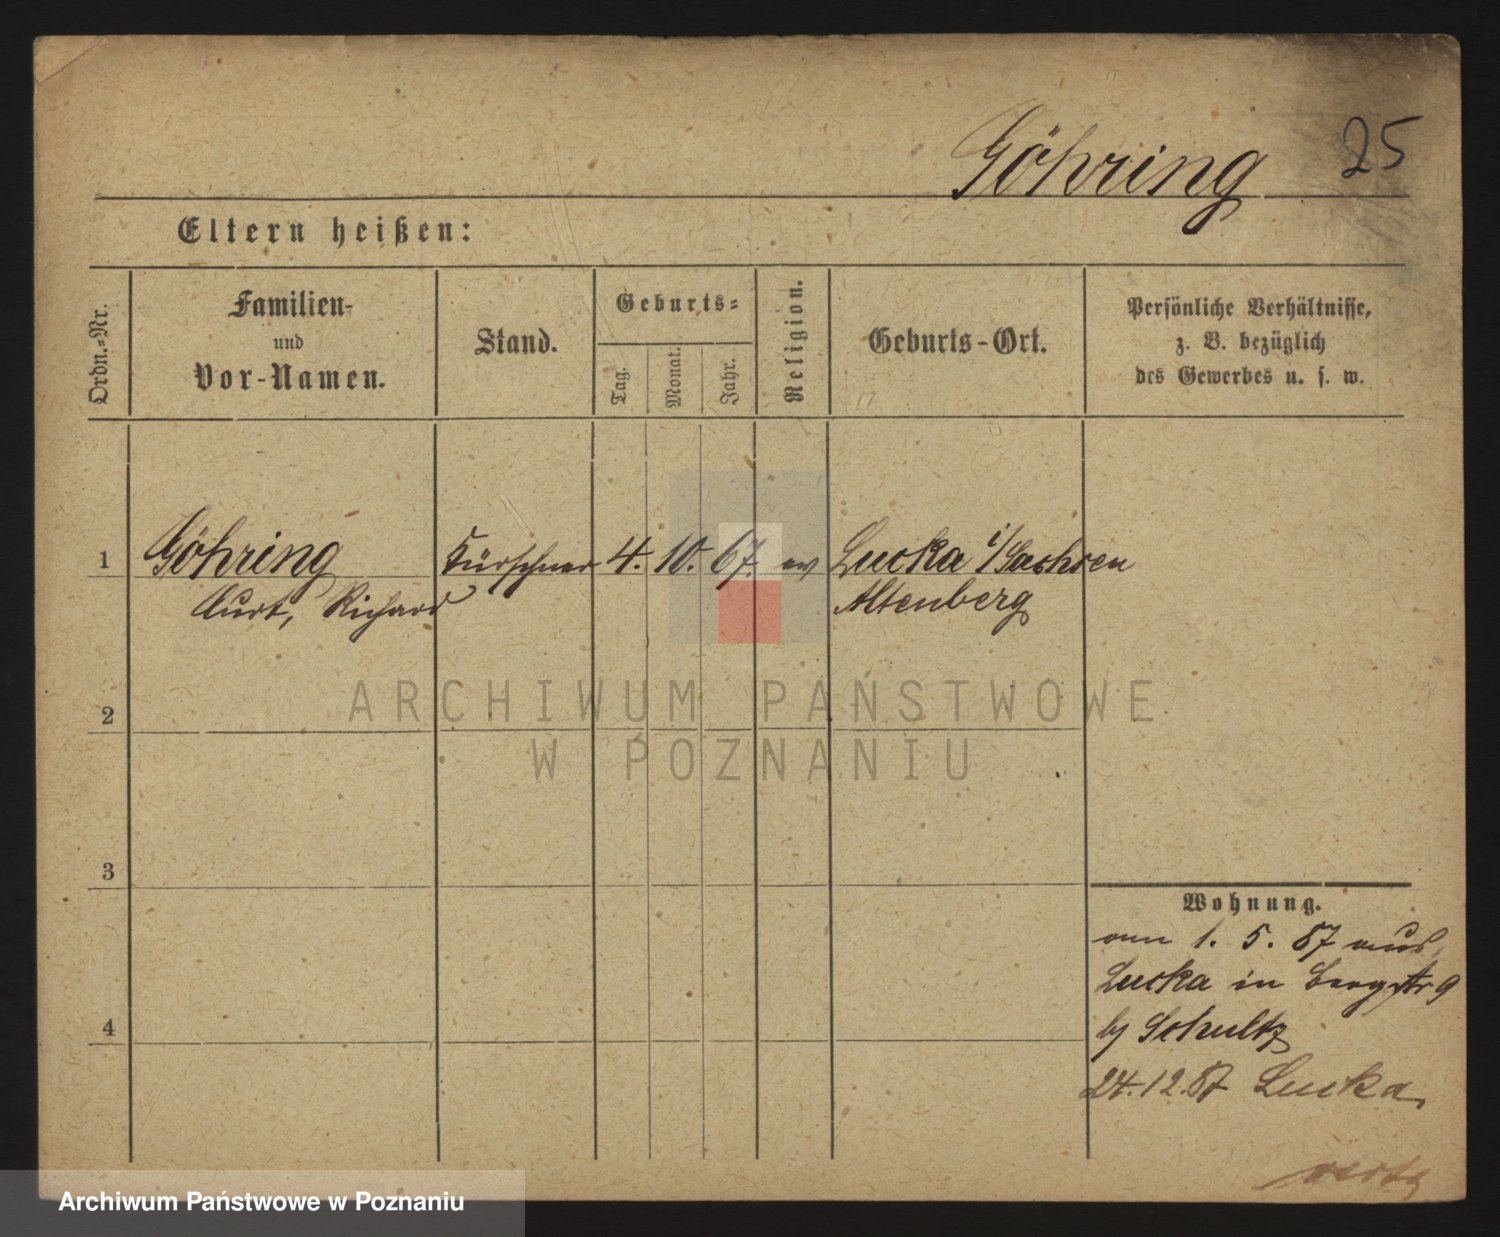 Göhring 25
Eltern heißen:
Ordn.-Nr.
Familien-
und
Vor-Namen.
Stand.
Geburts-
Tag.
Monat.
Jahr.
Religion.
Geburts-Ort.
Persönliche Verhältnisse,
z. B. bezüglich
des Gewerbes u. s. w.
1 Göhring Kürschner 4. 10. 67. ev Lucka i/Sachsen
Curt, Richard Altenberg
ARCHIWUM PAŃSTWOWE
W POZNANIU
2
3
4
Wohnung.
am 1. 5. 87 aus
Lucka in Bergstr 9
by Schultz
24.12.87 Lucka
Archiwum Państwowe w Poznaniu